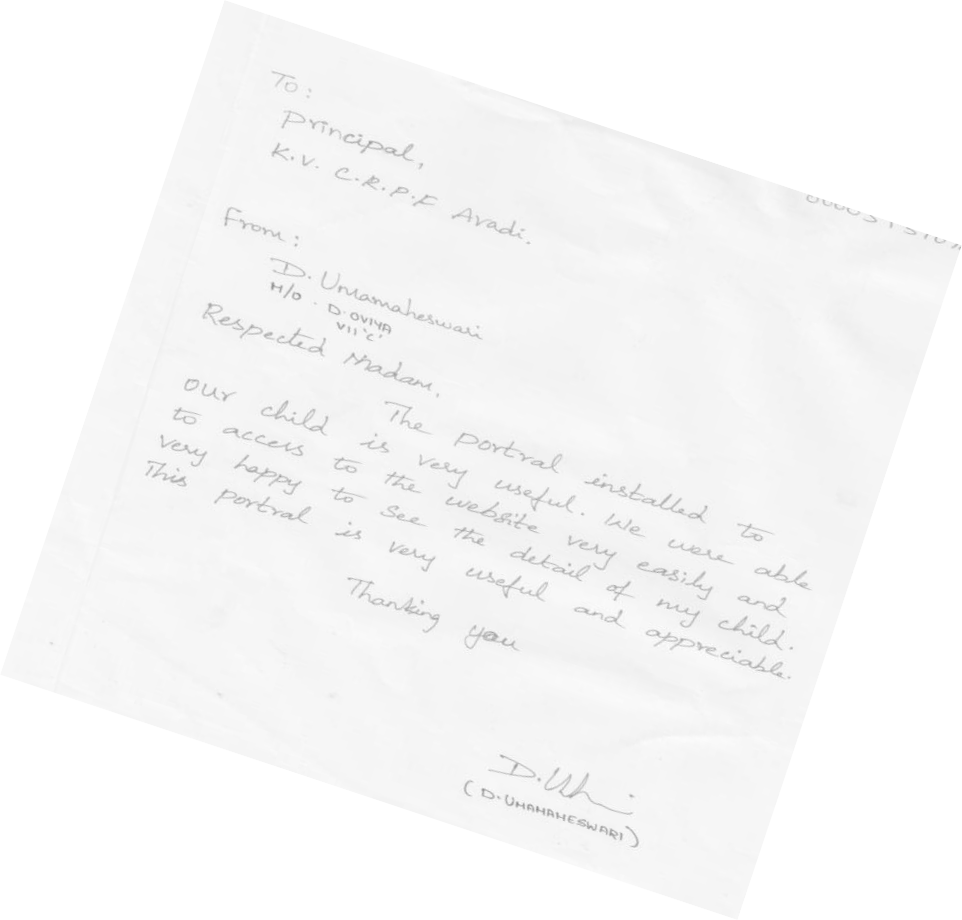 To:
Principal,
K.V. C.R.P.F Avadi.
From:
D. Umamaheswari
M/O. D.OVIYA
VII 'C'
Respected Madam,
The portral installed to
our child is very useful. We were able
to access to the website very easily and
very happy to see the detail of my child.
This portral is very useful and appreciable.
Thanking you
(D.UMAMAHESWARI)